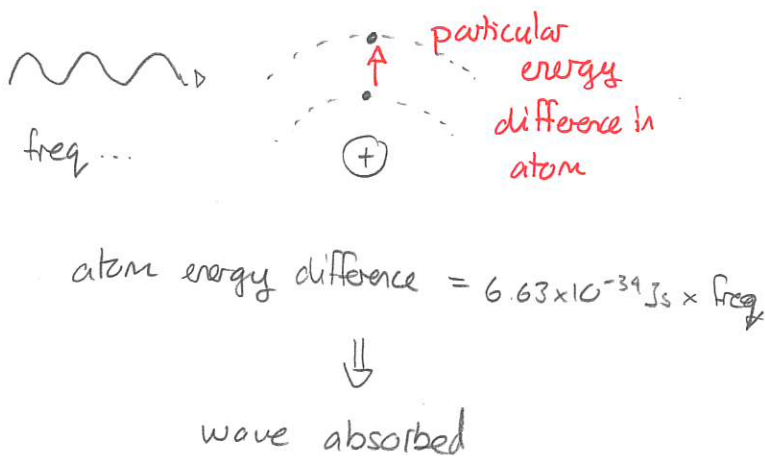 particular
energy
difference in
atom
freq ...
+
atom energy difference = 6.63×10⁻³⁴ Js × freq
⇓
wave absorbed